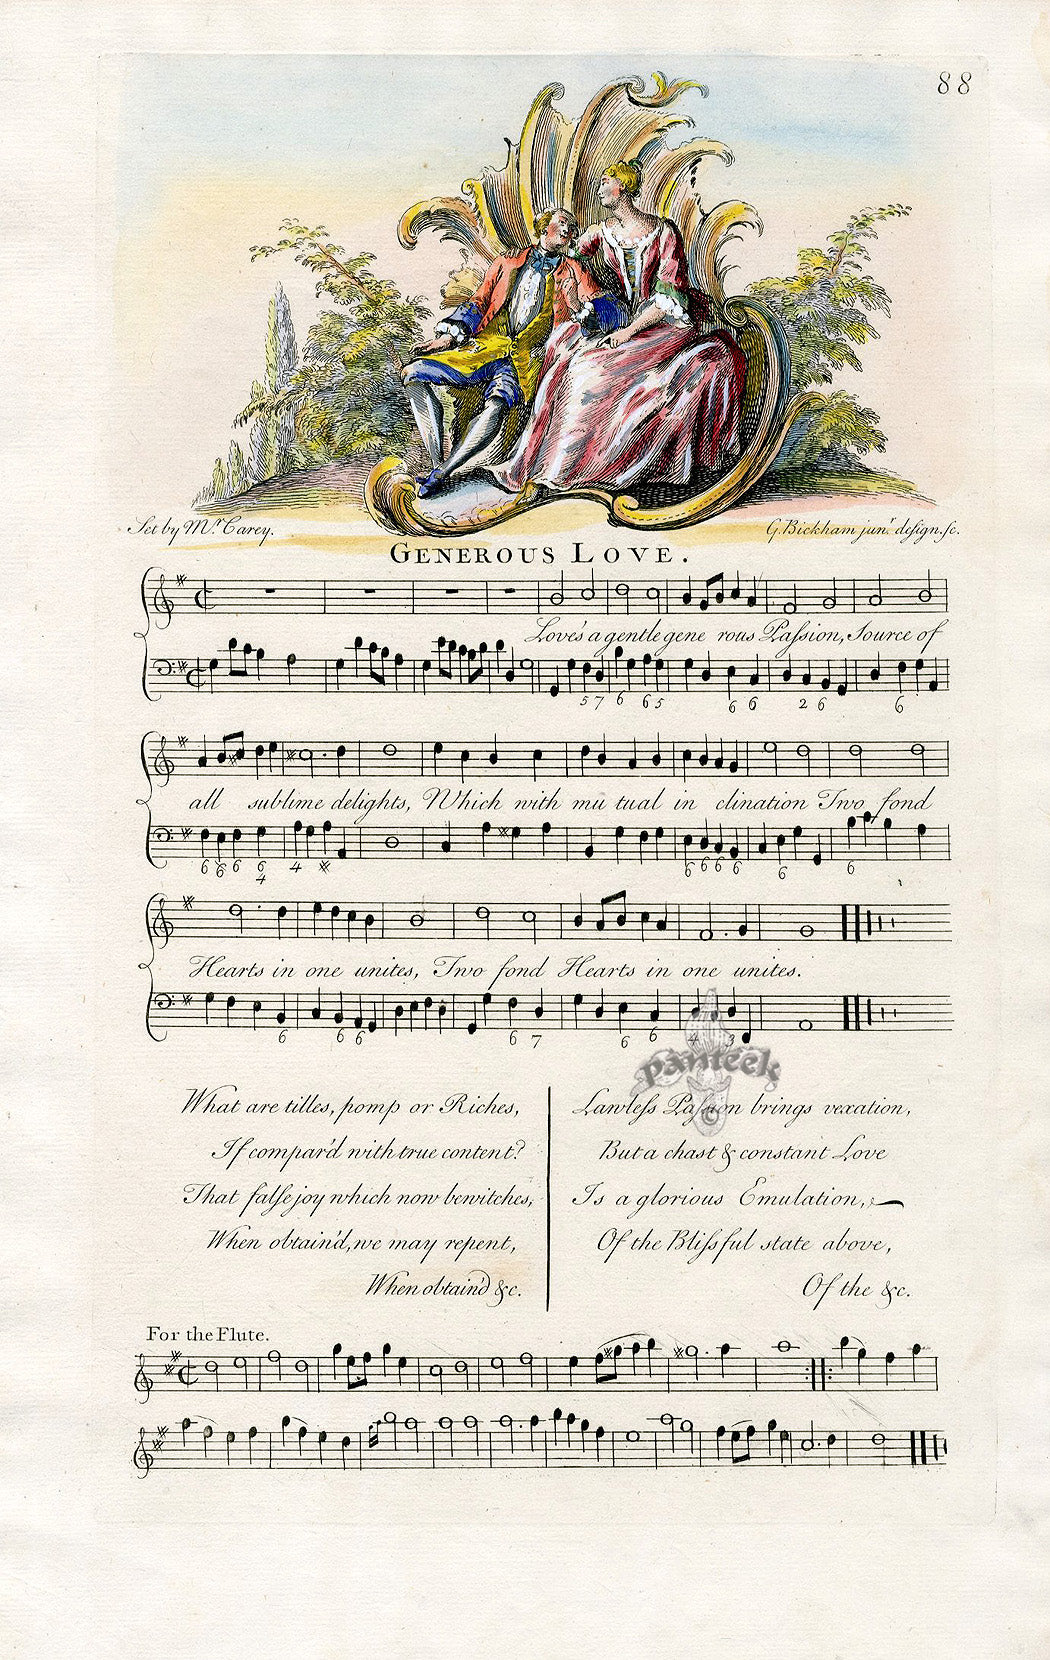 88
Set by Mr. Carey.
G. Bickham junr. design. sc.
GENEROUS LOVE.
Love's a gentle gene rous Paſsion, Source of
5 7 6 6 5 6 6 2 6 6
all sublime delights, Which with mu tual in clination Two fond
6 6 6 6 4 4 6 6 6 6 6 6
Hearts in one unites, Two fond Hearts in one unites.
6 6 6 6 7 6 6 4 3
panteek
©
What are titles, pomp or Riches,
If compar'd with true content?
That falſe joy which now bewitches,
When obtain'd, we may repent,
When obtain'd &c.
Lawleſs Paſsion brings vexation,
But a chast & constant Love
Is a glorious Emulation,
Of the Bliſsful state above,
Of the &c.
For the Flute.